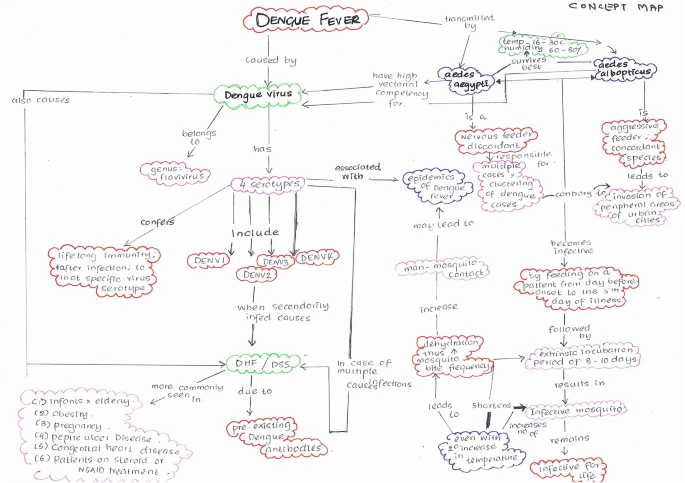 CONCEPT MAP
DENGUE FEVER
transmitted
by
temp - 16 - 30C
humidity 60 - 80%
survives
best
caused by
aedes
aegypti
aedes
albopticus
have high
vectorial
competency
for.
also causes
Dengue virus
is a
is
belongs
to
has
nervous feeder
discordant
aggressive
feeder;
concordant
species
responsible
for:
genus:
flavivirus
associated
with
4 serotypes
epidemics
of dengue
fever
multiple
cases;
clustering
of dengue
cases
contrary to
leads to
invasion of
peripheral areas
of urban
cities
confers
Include
may lead to
lifelong immunity;
after infection; to
that specific virus
serotype
DENV1
DENV2
DENV3
DENV4
man-mosquito
contact
becomes
infective
by feeding on a
patient from day before
onset to the 5th
day of illness
when secondarily
infed causes
increase
followed
by
DHF / DSS
In case of
multiple
infections
causes
dehydration
thus ↑
mosquito
bite frequency
extrinsic incubation
period of 8-10 days
more commonly
seen in
due to
results in
(1) infants & elderly.
(2) obesity.
(3) pregnancy.
(4) peptic ulcer Disease.
(5) Congenital heart disease
(6) Patients on steroid or
NSAID treatment
pre-existing
Dengue
antibodies
leads
to
shortens
increases
no of
Infective mosquito
even with
2° increase
in temperature
remains
infective for
life